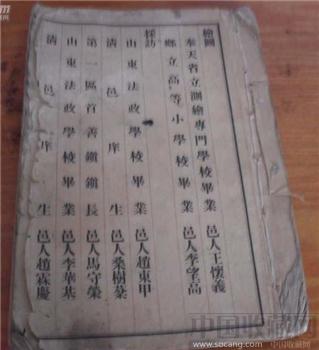 繪圖
奉天省立測繪專門學校畢業 邑人王懷義
鄉立高等小學校畢業 邑人李望高
採訪
山東法政學校畢業 邑人趙東甲
清邑庠生 邑人桑樹棻
第一區首善鎮鎮長 邑人馬守榮
山東法政學校畢業 邑人李華基
清邑庠生 邑人趙霖慶
中国收藏网
http://www.socang.com